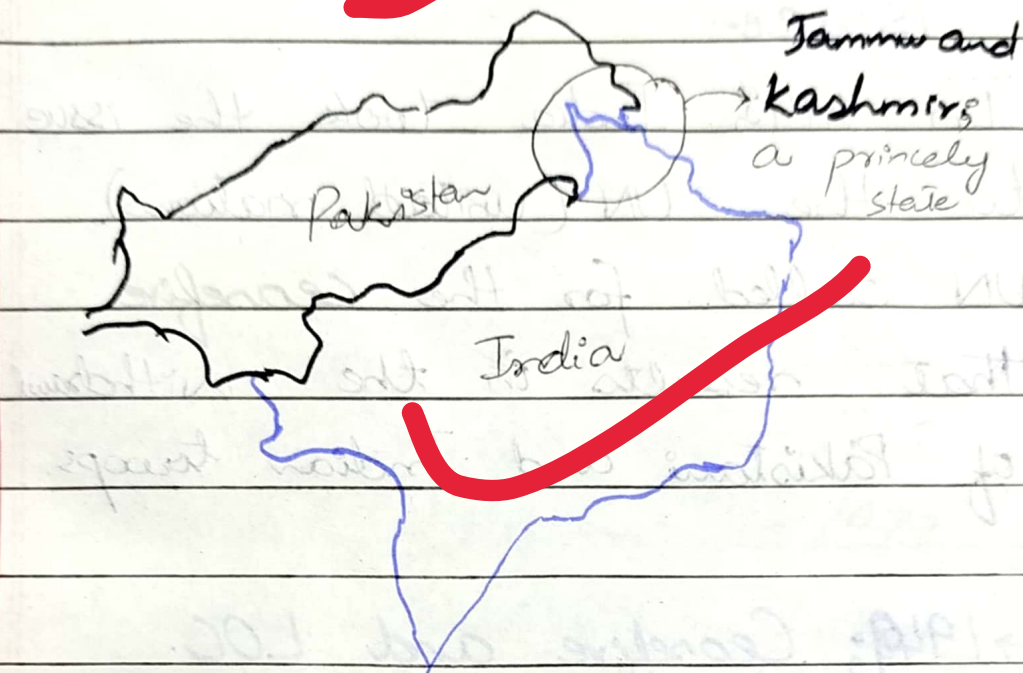 Jammu and
Kashmir;
a princely
state
Pakistan
India